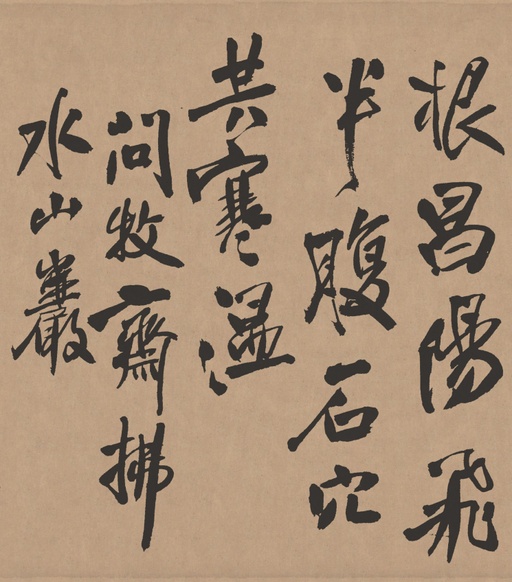 根昌陽飛
半腹石穴
共寒溫
問牧齋拂
水山巖